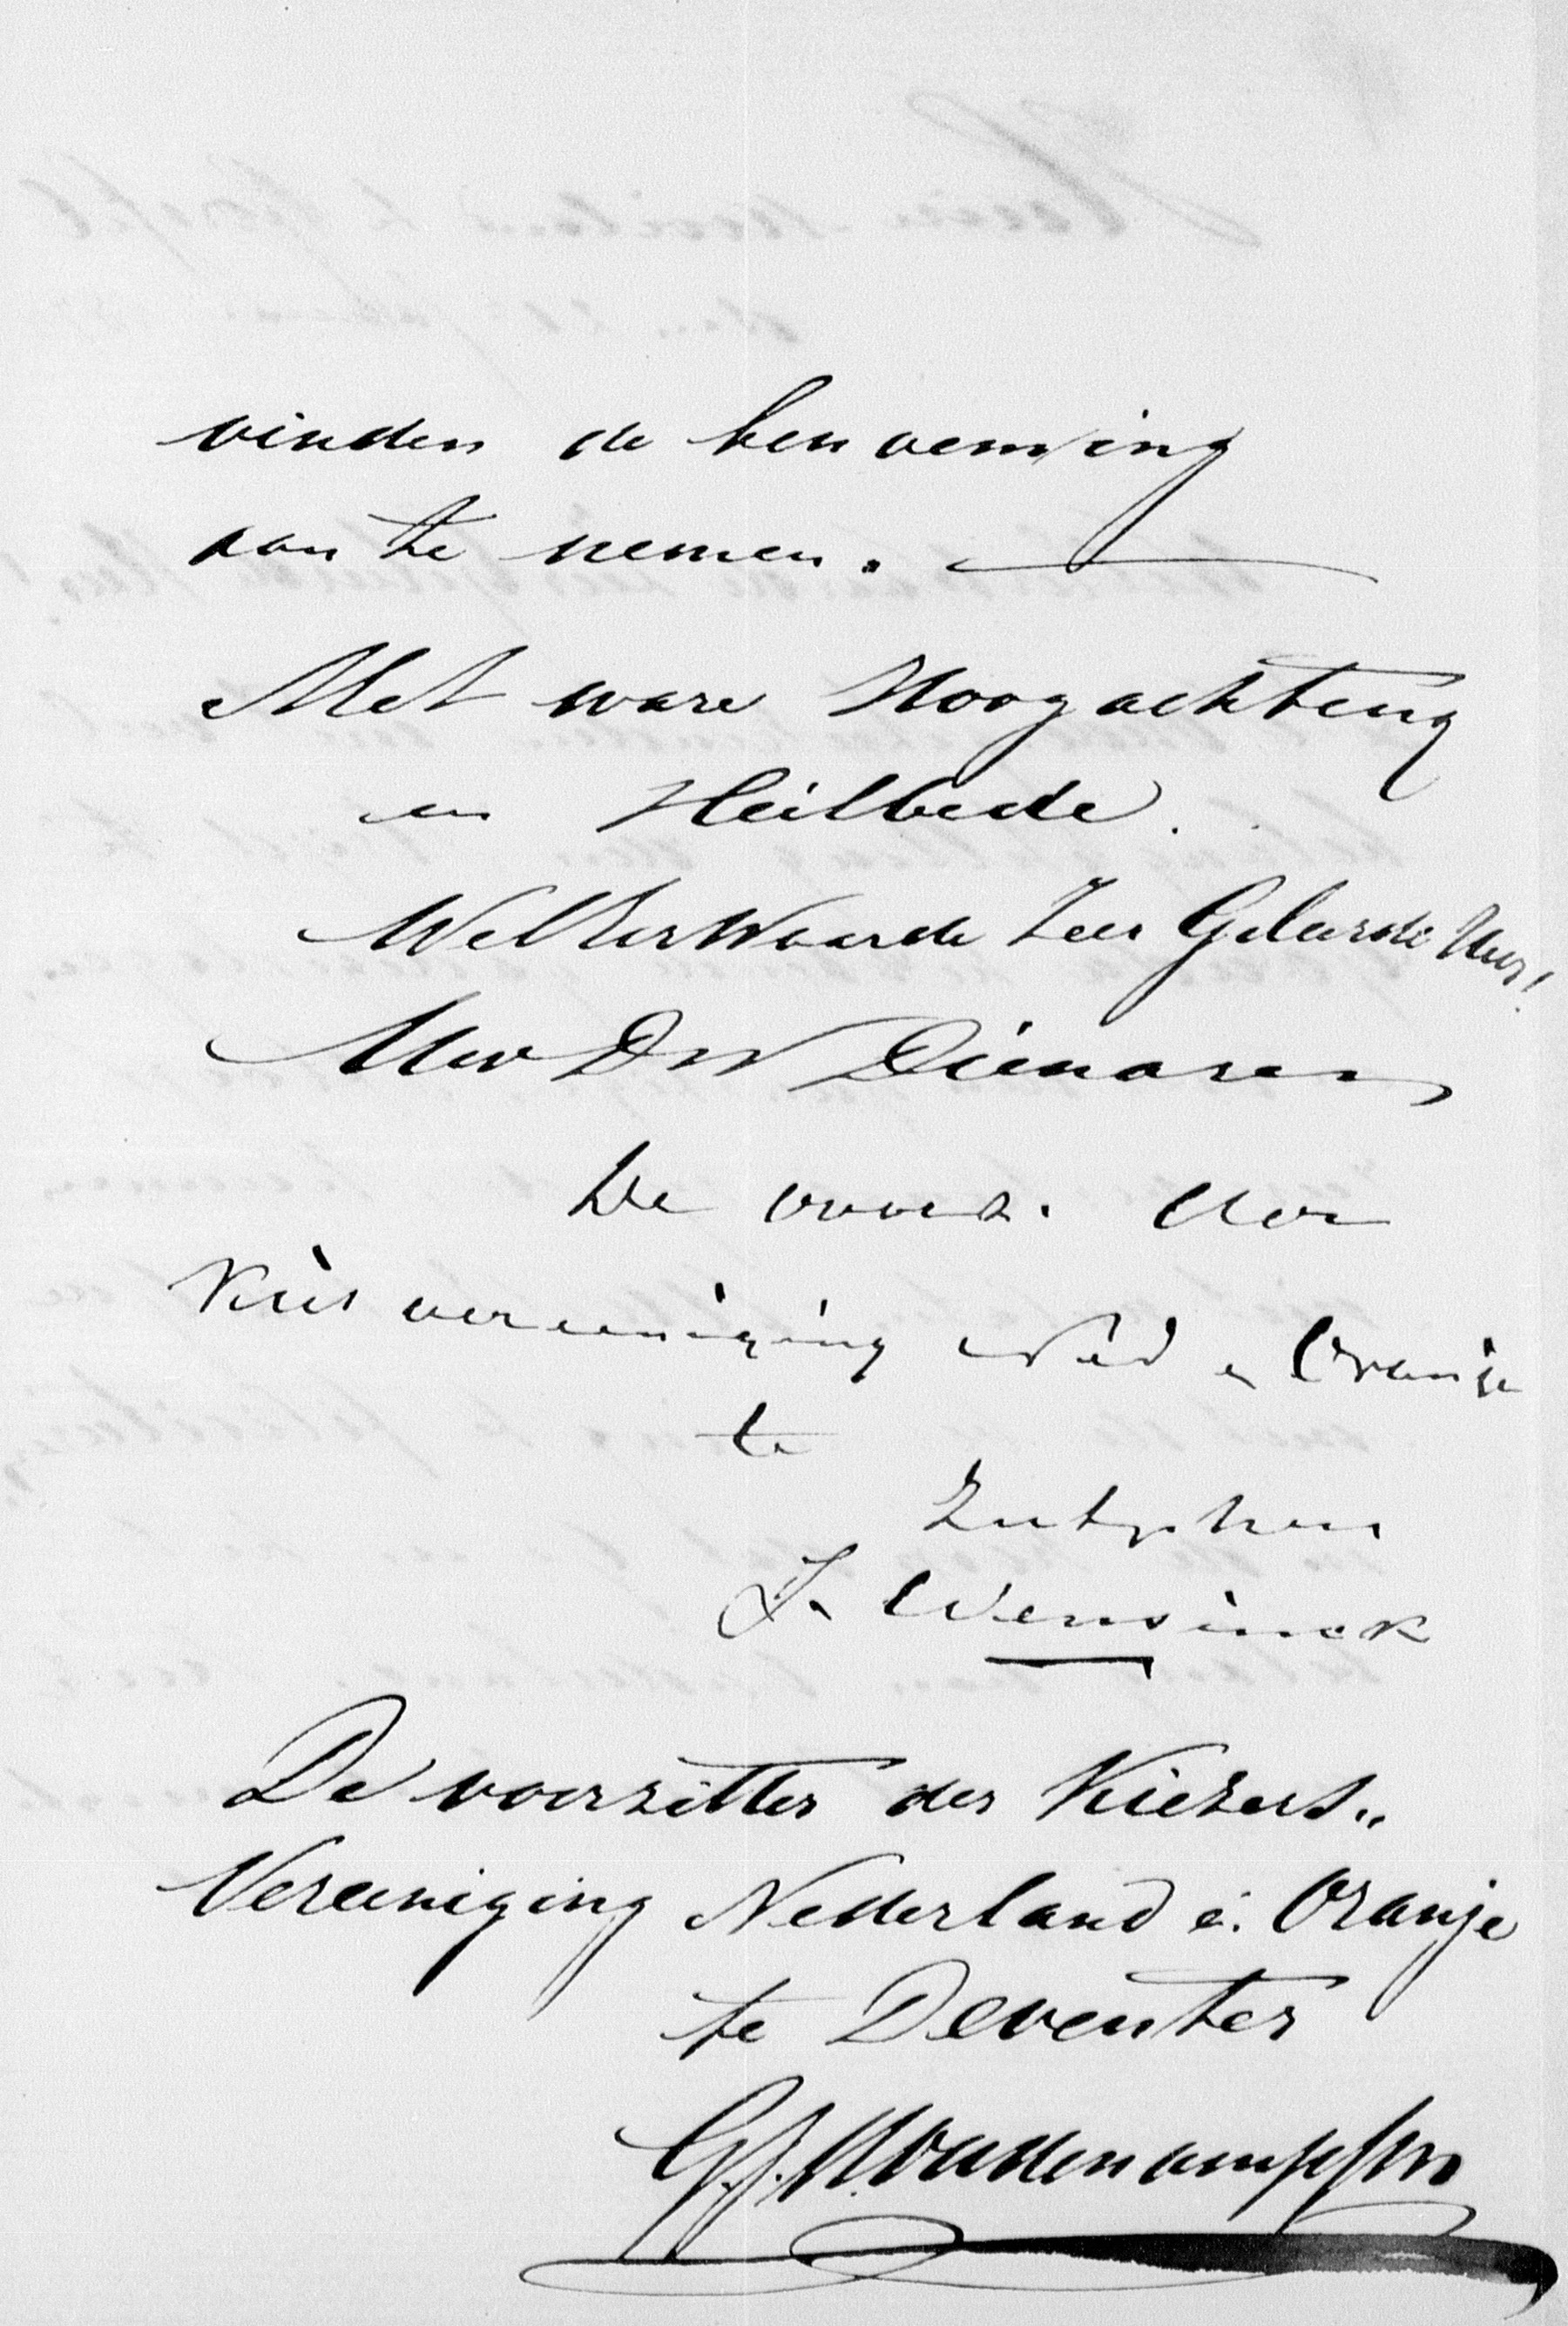 vinden de benoeming
aan te nemen.
Met ware Hoogachting
en Heilbede.
WelEerWaarde Zeer Geleerde Heer!
Uw DW Dienaren
De voorz. der
Kiesvereeniging Ned en Oranje
te
Zutphen
J. Wensinck
De voorzitter der Kiezers„
Vereeniging Nederland e. Oranje
te Deventer